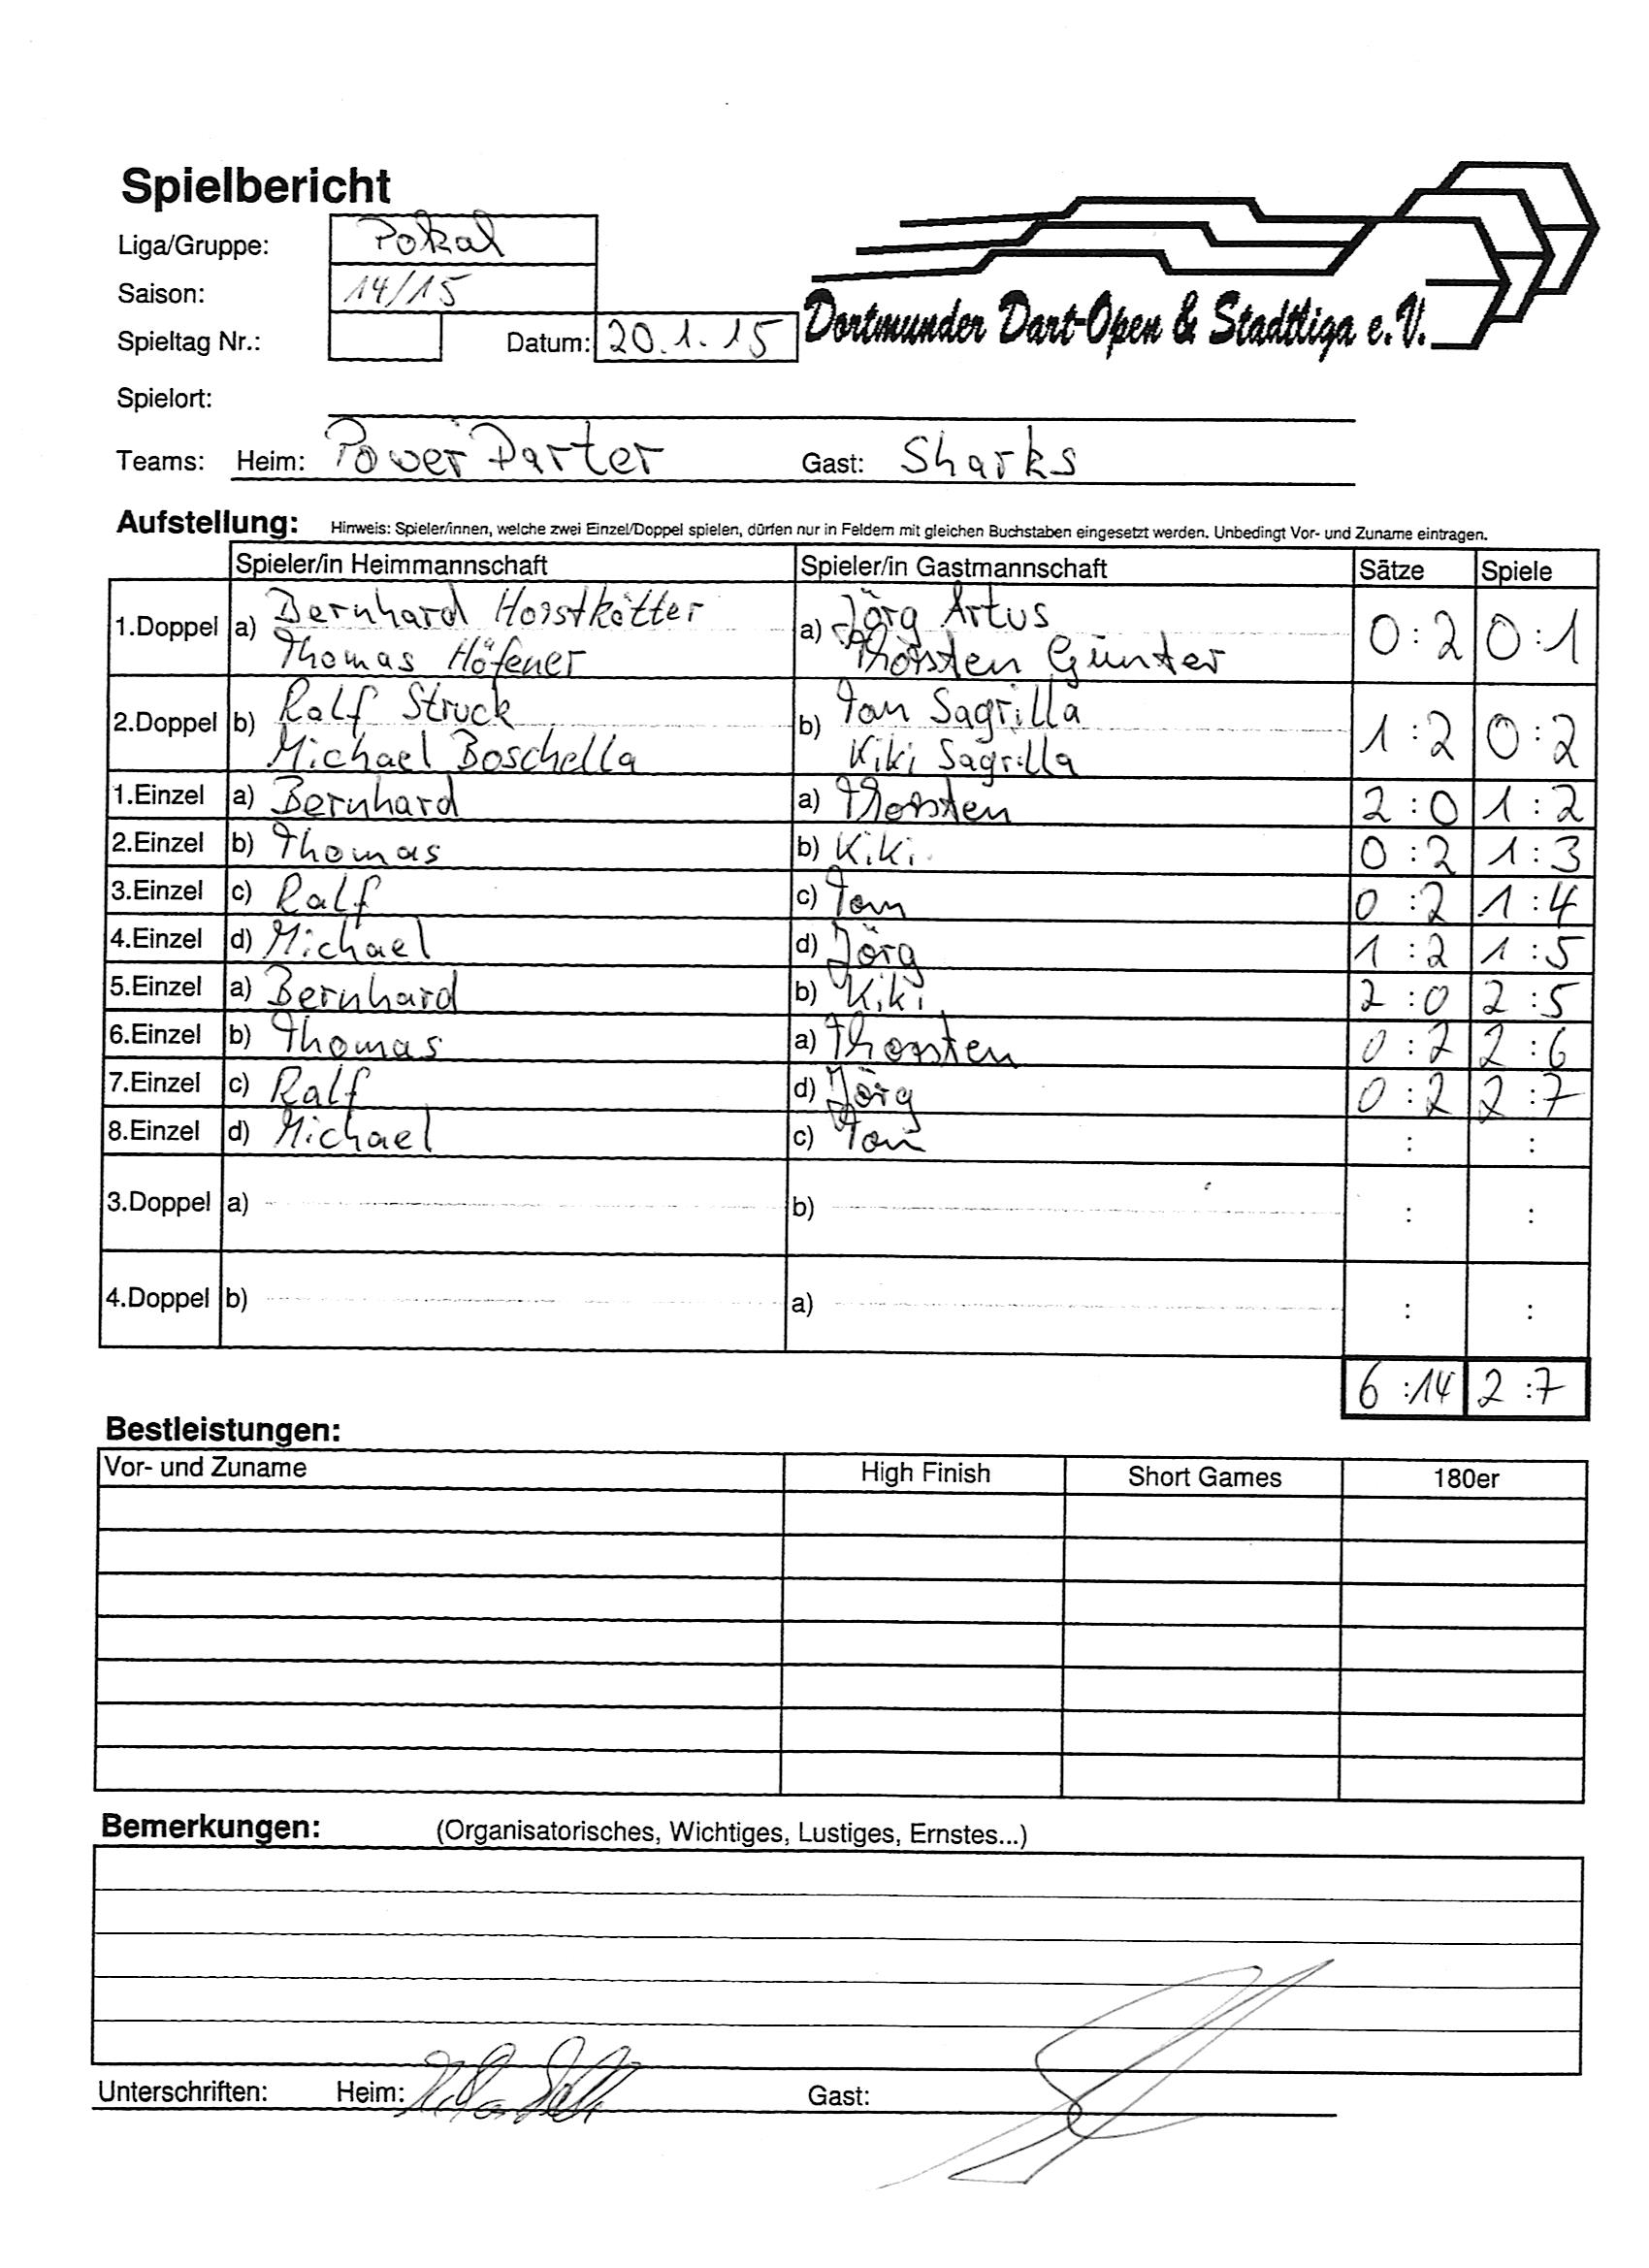 Spielbericht
Liga/Gruppe: Pokal
Saison: 14/15
Spieltag Nr.: Datum: 20.1.15
Dortmunder Dart-Open & Stadtliga e.V.
Spielort:
Teams: Heim: Power Darter Gast: Sharks
Aufstellung: Hinweis: Spieler/innen, welche zwei Einzel/Doppel spielen, dürfen nur in Feldern mit gleichen Buchstaben eingesetzt werden. Unbedingt Vor- und Zuname eintragen.
Spieler/in Heimmannschaft Spieler/in Gastmannschaft Sätze Spiele
1.Doppel a) Bernhard Horstkötter a) Jörg Artus 0:2 0:1
Thomas Höfener Thorsten Günter
2.Doppel b) Ralf Struck b) Tom Sagrilla 1:2 0:2
Michael Boschella Kiki Sagrilla
1.Einzel a) Bernhard a) Thorsten 2:0 1:2
2.Einzel b) Thomas b) Kiki 0:2 1:3
3.Einzel c) Ralf c) Tom 0:2 1:4
4.Einzel d) Michael d) Jörg 1:2 1:5
5.Einzel a) Bernhard b) Kiki 2:0 2:5
6.Einzel b) Thomas a) Thorsten 0:2 2:6
7.Einzel c) Ralf d) Jörg 0:2 2:7
8.Einzel d) Michael c) Tom : :
3.Doppel a) b) : :
4.Doppel b) a) : :
6:14 2:7
Bestleistungen:
Vor- und Zuname High Finish Short Games 180er
Bemerkungen: (Organisatorisches, Wichtiges, Lustiges, Ernstes...)
Unterschriften: Heim: Gast: